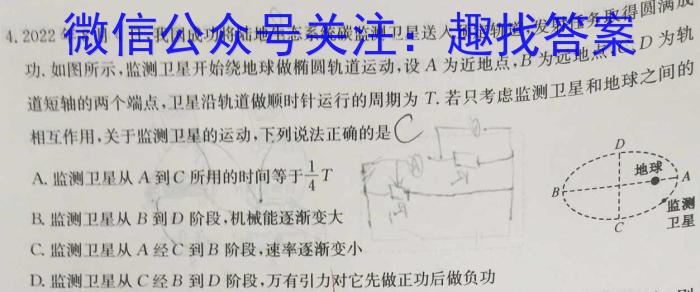 微信公众号关注：趣找答案
4.2022年 月 日,我国成功将陆地生态系统碳监测卫星送入预定轨道,发射任务取得圆满成
功.如图所示,监测卫星开始绕地球做椭圆轨道运动,设 A 为近地点,B 为远地点,C、D 为轨
道短轴的两个端点,卫星沿轨道做顺时针运行的周期为 T.若只考虑监测卫星和地球之间的
相互作用,关于监测卫星的运动,下列说法正确的是 C
A.监测卫星从 A 到 C 所用的时间等于1/4 T
B.监测卫星从 B 到 D 阶段,机械能逐渐变大
C.监测卫星从 A 经 C 到 B 阶段,速率逐渐变小
D.监测卫星从 C 经 B 到 D 阶段,万有引力对它先做正功后做负功
D
地球
A
B
监测
卫星
C